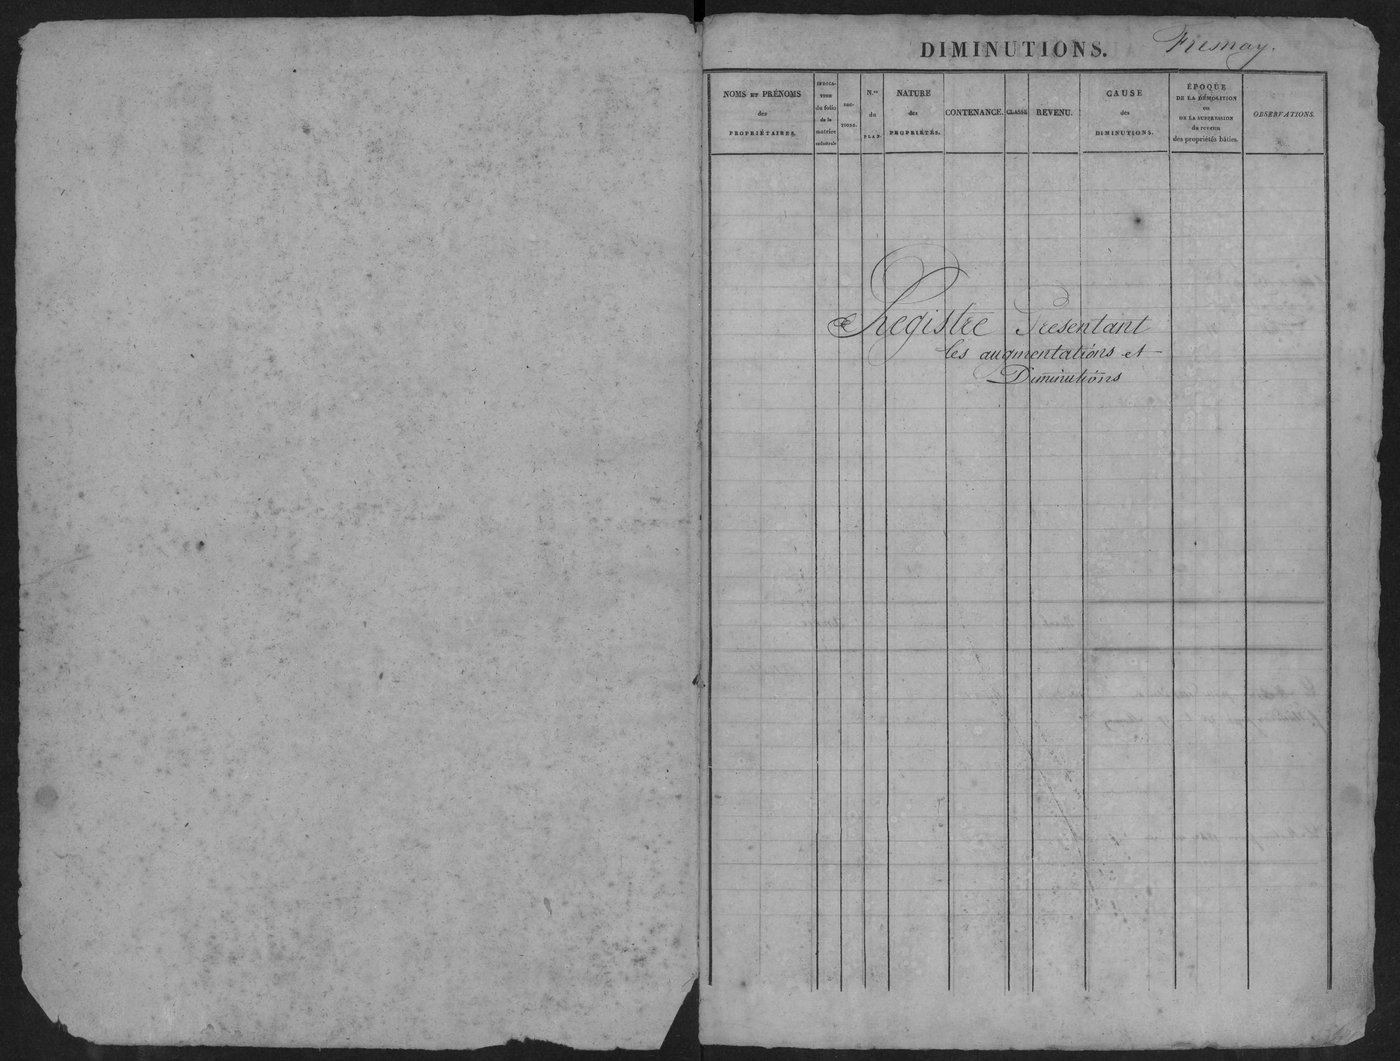 DIMINUTIONS.
Fresnay.
NOMS ET PRÉNOMS
des
PROPRIÉTAIRES.
INDICA-
TION
du folio
de la
matrice
cadastrale
SEC-
TIONS.
N.os
du
PLAN
NATURE
des
PROPRIÉTÉS.
CONTENANCE.
CLASSE
REVENU.
CAUSE
des
DIMINUTIONS.
ÉPOQUE
DE LA DÉMOLITION
ou
DE LA SUPPRESSION
du revenu
des propriétés bâties.
OBSERVATIONS.
Registre Presentant
les augmentations et
Diminutions